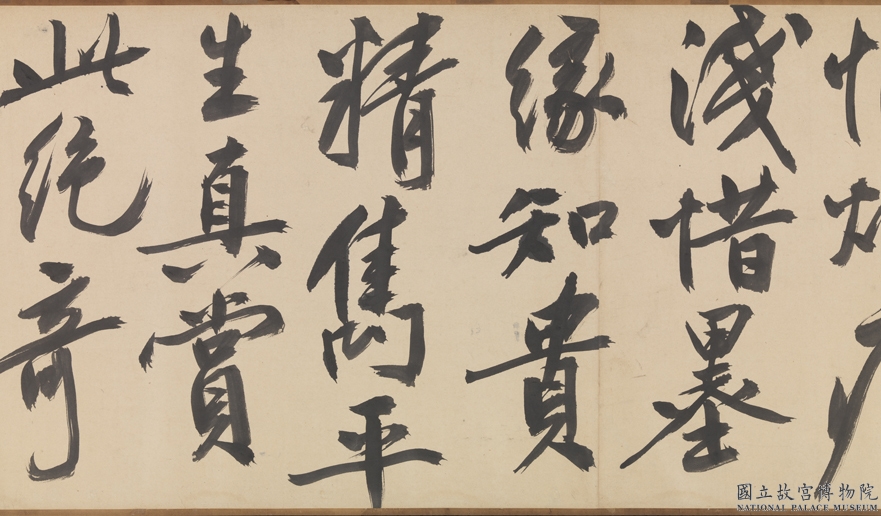 淺惜墨
緣知貴
精雋平
生真賞
此絕奇
國立故宮博物院
NATIONAL PALACE MUSEUM